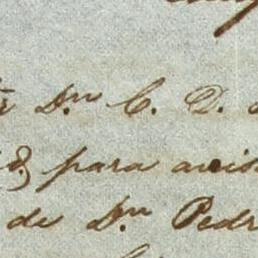 Dn C. D.
para avis
de Dn Pedr